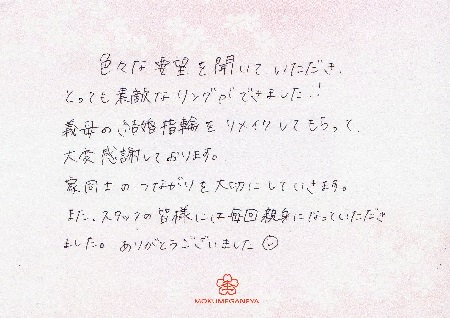 色々な要望を聞いていただき、
とっても素敵なリングができました!
義母の結婚指輪をリメイクしてもらって、
大変感謝しております。
家同士のつながりを大切にしていきます。
また、スタッフの皆様には毎回親身になっていただき
ました。ありがとうございました
MOKUMEGANEYA